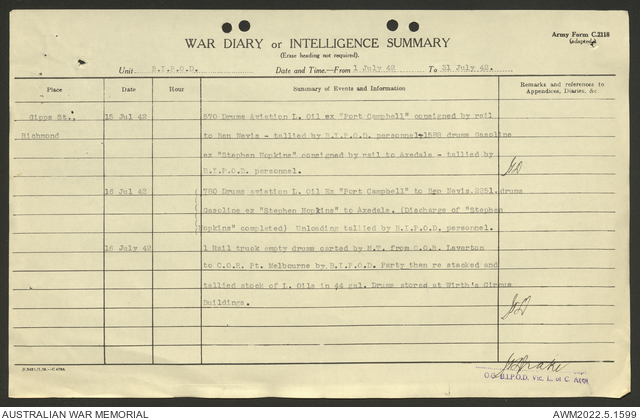 Army Form C.2118
(adapted)
WAR DIARY or INTELLIGENCE SUMMARY
(Erase heading not required).
Unit B.I.P.O.D. Date and Time.—From 1 July 42 To 31 July 42.
Place Date Hour Summary of Events and Information Remarks and references to Appendices, Diaries, &c.
Gipps St., 15 Jul 42 570 Drums Aviation L. Oil ex "Port Campbell" consigned by rail
Richmond to Ben Nevis - tallied by B.I.P.O.D. personnel, 1588 drums Gasoline
ex "Stephen Hopkins" consigned by rail to Axedale - tallied by
B.I.P.O.D. personnel.
16 Jul 42 780 Drums aviation L. Oil Ex "Port Campbell" to Ben Nevis. 2251 drums
Gasoline ex "Stephen Hopkins" to Axedale. (Discharge of "Stephen
Hopkins" completed) Unloading tallied by B.I.P.O.D. personnel.
16 July 42 1 Rail truck empty drums carted by M.T. from C.O.R. Laverton
to C.O.R. Pt. Melbourne by B.I.P.O.D. Party then re stacked and
tallied stock of L. Oils in 44 gal. Drums stored at Wirth's Circus
Buildings.
O.C. B.I.P.O.D. Vic. L. of C. Area
AUSTRALIAN WAR MEMORIAL AWM2022.5.1599